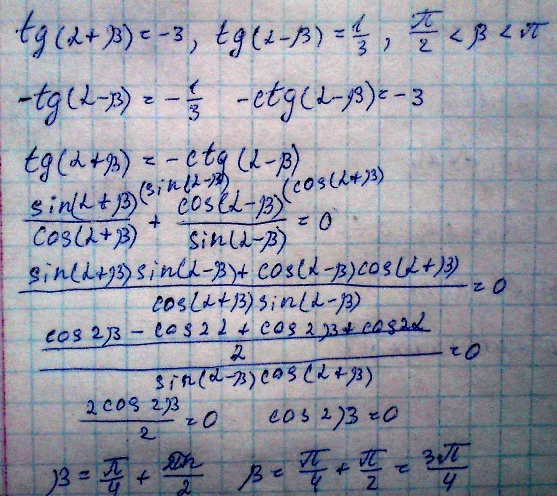 tg(α+β) = -3, tg(α-β) = 1/3, π/2 < β < π
-tg(α-β) = -1/3   -ctg(α-β) = -3
tg(α+β) = -ctg(α-β)
sin(α+β)/cos(α+β) (sin(α-β) + cos(α-β)/sin(α-β) (cos(α+β) = 0
(sin(α+β)sin(α-β) + cos(α-β)cos(α+β))/(cos(α+β)sin(α-β)) = 0
((cos2β - cos2α + cos2β + cos2α)/2)/(sin(α-β)cos(α+β)) = 0
2cos2β/2 = 0   cos2β = 0
β = π/4 + πn/2   β = π/4 + π/2 = 3π/4